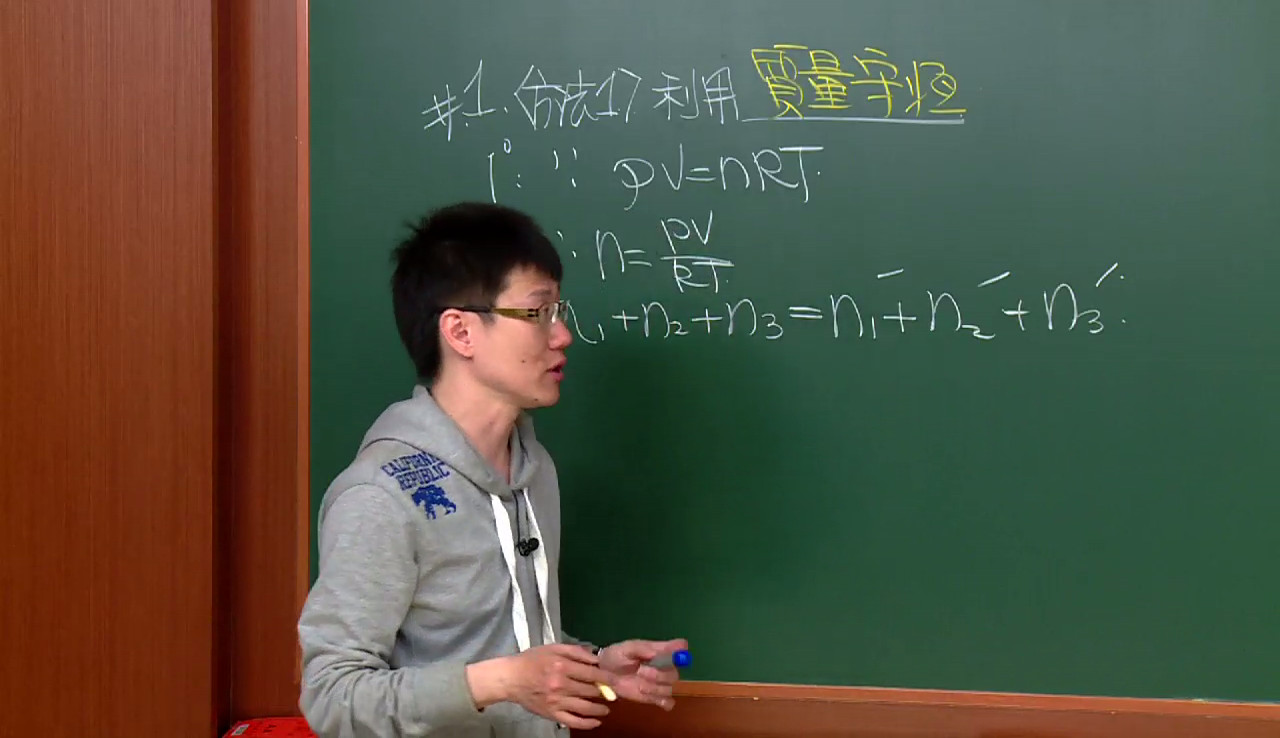 #.1.〈方法1〉利用質量守恆
1°: ∵ PV=nRT.
∴ n=PV/RT.
n₁+n₂+n₃=n₁'+n₂'+n₃'.
CALIFORNIA
REPUBLIC